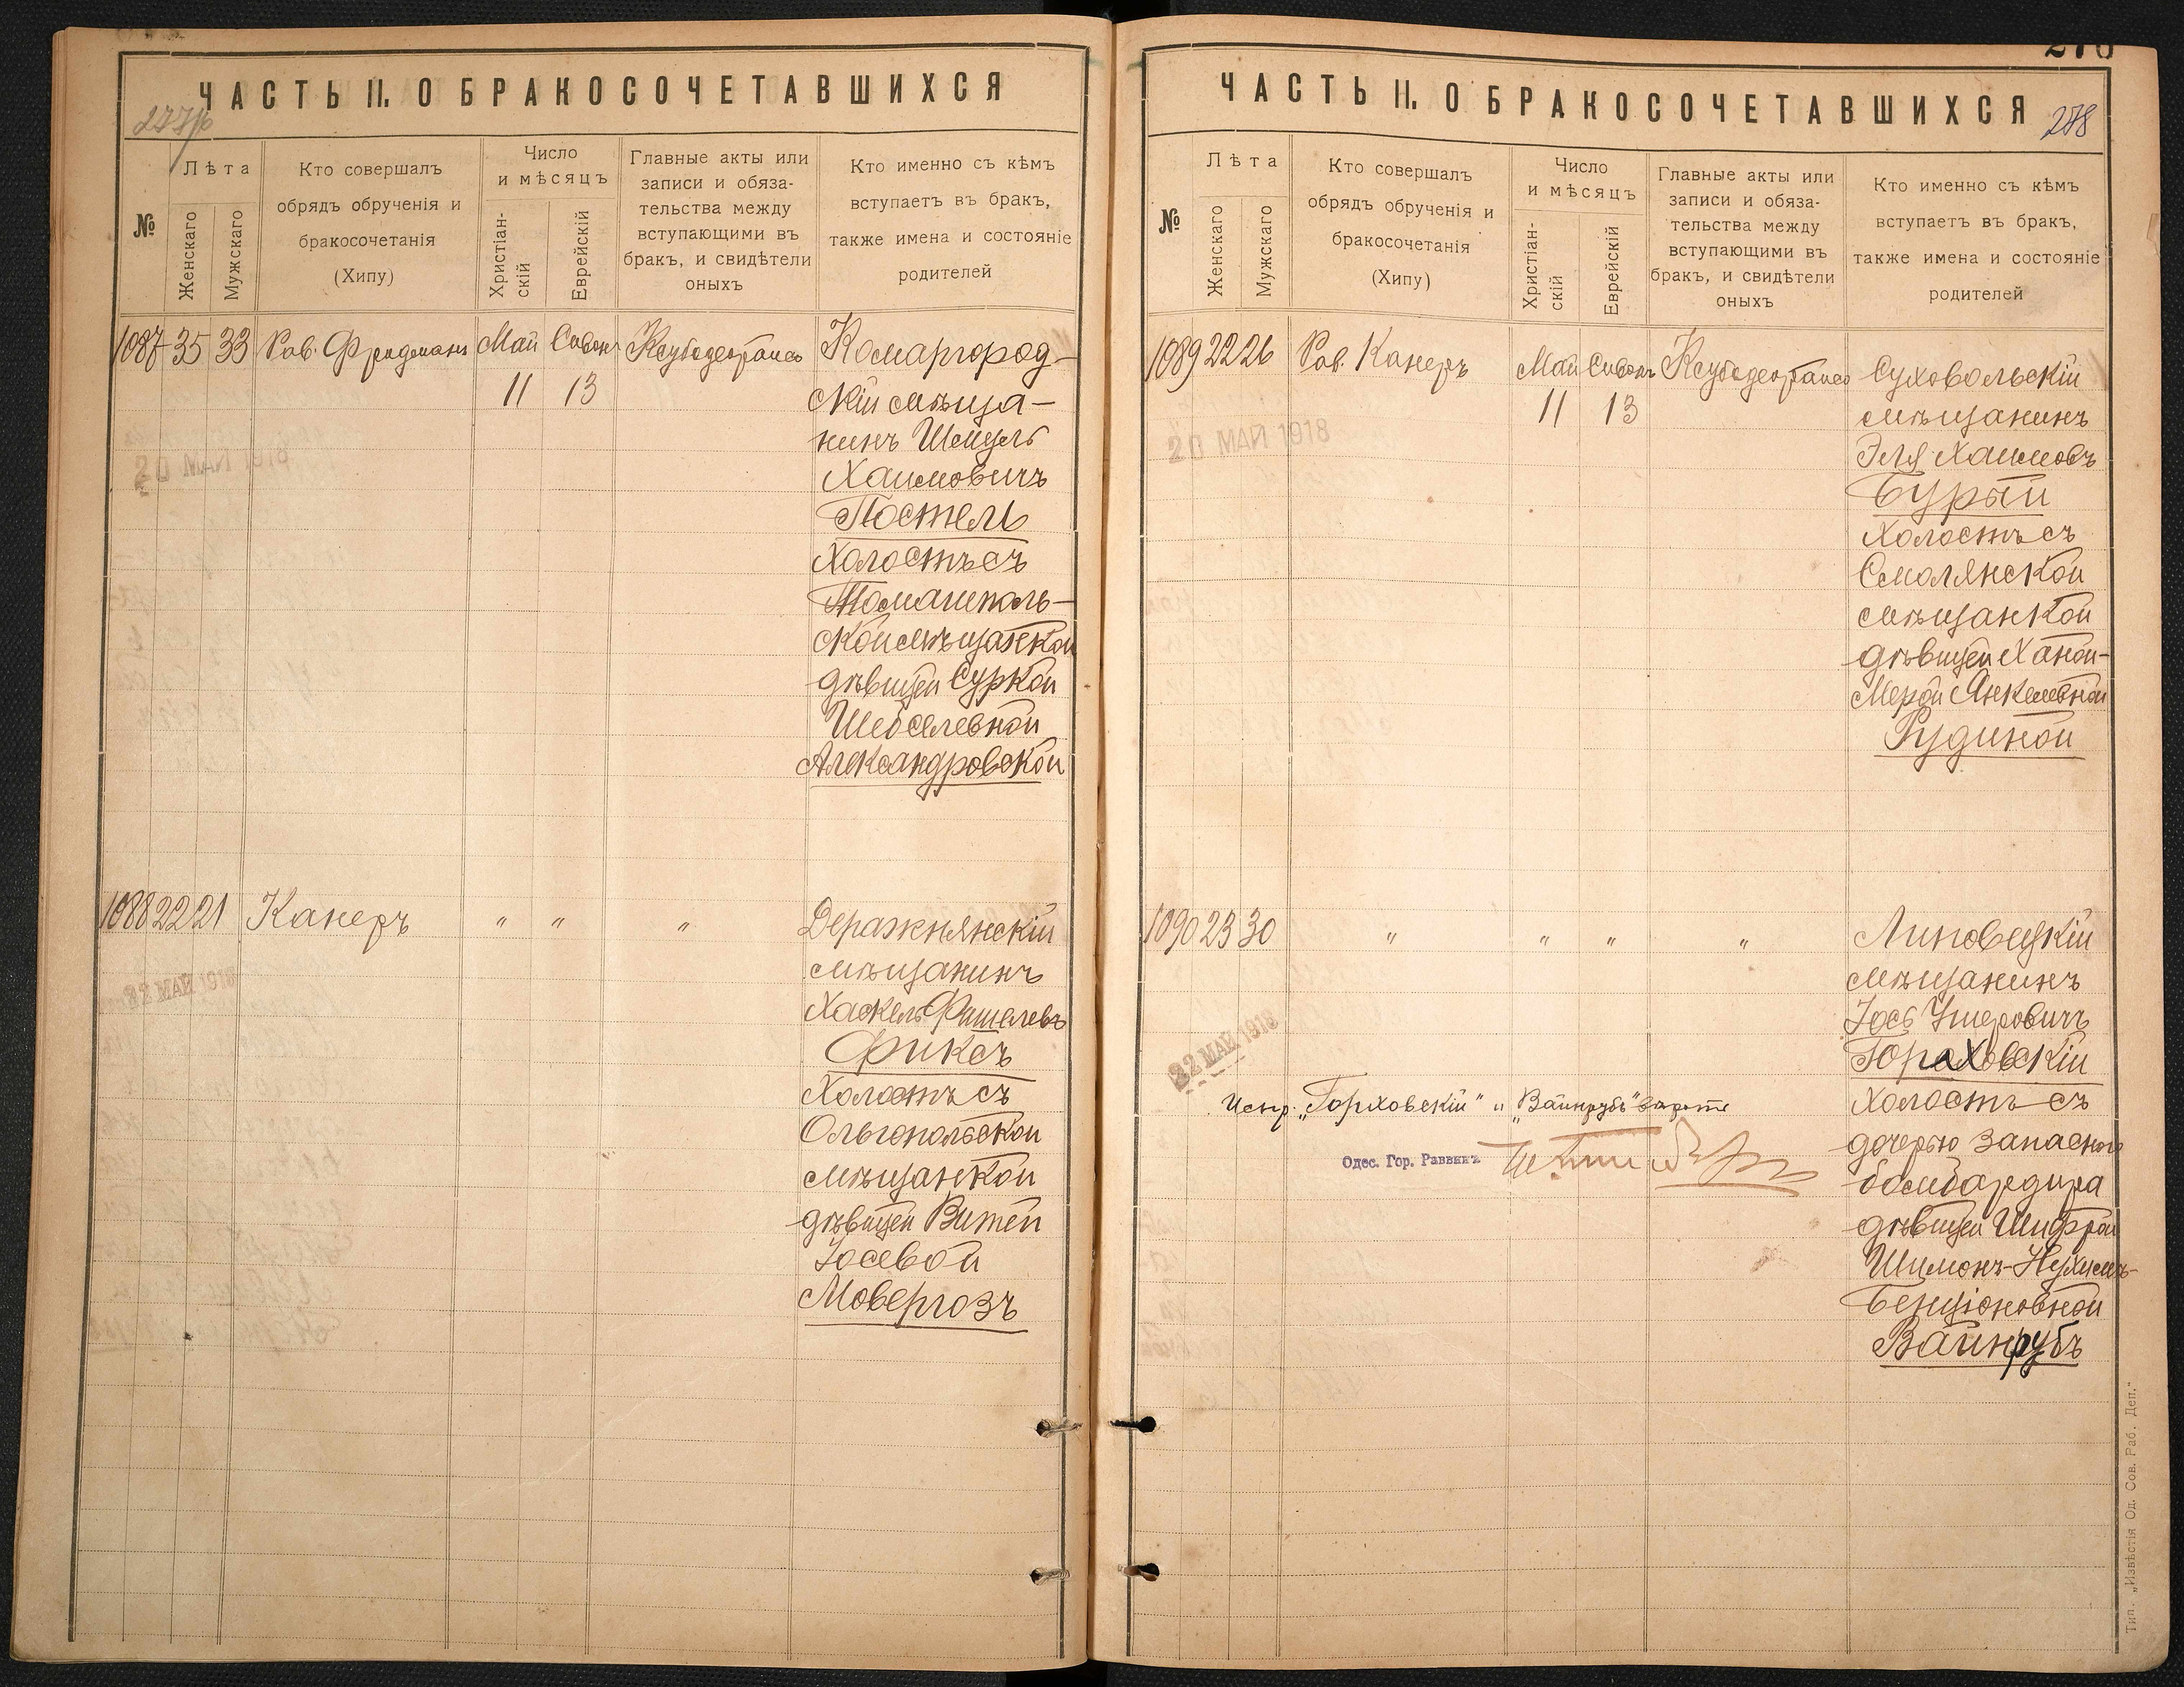 ЧАСТЬ II. О БРАКОСОЧЕТАВШИХСЯ
№
Лѣта
Женскаго
Мужскаго
Кто совершалъ
обрядъ обрученія и
бракосочетанія
(Хипу)
Число
и мѣсяцъ
Христіан-
скій
Еврейскій
Главные акты или
записи и обяза-
тельства между
вступающими въ
бракъ, и свидѣтели
оныхъ
Кто именно съ кѣмъ
вступаетъ въ бракъ,
также имена и состояніе
родителей
1087 35 33 Рав. Фридманъ Май Сивонъ
11 13
Комаргород-
скій мѣща-
нинъ Шмуль
Хаимовичъ
Постель
холостъ съ
Томашполь-
ской мѣщанкой
дѣвицей Суркой
Шебселевной
Александровской
20 МАЙ 1918
1088 22 21 Канеръ " " "
Деражнянскій
мѣщанинъ
Хаскель Фишелевъ
Фиксъ
холостъ съ
Ольгопольской
мѣщанкой
дѣвицей Витей
Іосевой
Мовергозъ
22 МАЙ 1918
ЧАСТЬ II. О БРАКОСОЧЕТАВШИХСЯ
278
№
Лѣта
Женскаго
Мужскаго
Кто совершалъ
обрядъ обрученія и
бракосочетанія
(Хипу)
Число
и мѣсяцъ
Христіан-
скій
Еврейскій
Главные акты или
записи и обяза-
тельства между
вступающими въ
бракъ, и свидѣтели
оныхъ
Кто именно съ кѣмъ
вступаетъ въ бракъ,
также имена и состояніе
родителей
1089 22 26 Рав. Канеръ Май Сивонъ
11 13
Суховольскій
мѣщанинъ
Эля Хаимовъ
Бурый
холостъ съ
Смолянской
мѣщанкой
дѣвицей Ханой-
Мерой Янкелевной
Рудиной
20 МАЙ 1918
1090 23 30 " " " "
Липовецкій
мѣщанинъ
Іось Ушеровичъ
Гораховскій
холостъ съ
дочерью запаснаго
бомбардира
дѣвицей Шифрой
Шимонъ-Нухимъ-
Бенціоновной
Вайнрубъ
22 МАЙ 1918
Испр. „Гораховскій" и „Вайнрубъ" вѣрьте
Одес. Гор. Раввинъ
Тип. „Извѣстія Од. Сов. Раб. Деп."